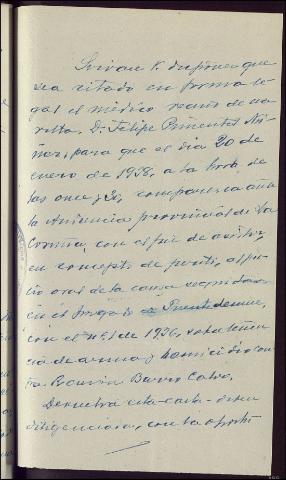 Sírvase V. disponer que
sea citado en forma le-
gal el médico vecino de
D. Felipe Pimentel
para que el dia 20 de
enero de 1938, a la hora de
las once y 30, comparezca ante
la Audiencia provincial de La
Coruña, con el fin de asistir,
en concepto de perito, al jui-
cio oral de la causa seguida
en el Juzgado de Puentedeume,
con el nº 1 de 1936, sobre tenen-
cia de armas y homicidio con-
tra Barro
Devuelva esta carta-orden
diligenciada, con la oportu-